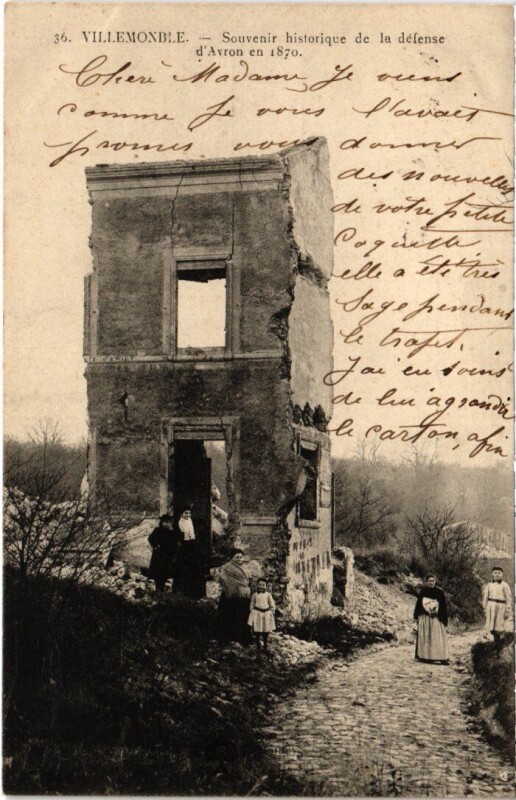 36. VILLEMONBLE. — Souvenir historique de la défense
d'Avron en 1870.
Cherè Madame Je viens
comme Je vous l'avait
promis vous donner
des nouvelles
de votre petite
Coquette,
elle a été très
Sage pendant
le trajet.
J'ai eu soins
de lui agrandir
le carton, afin